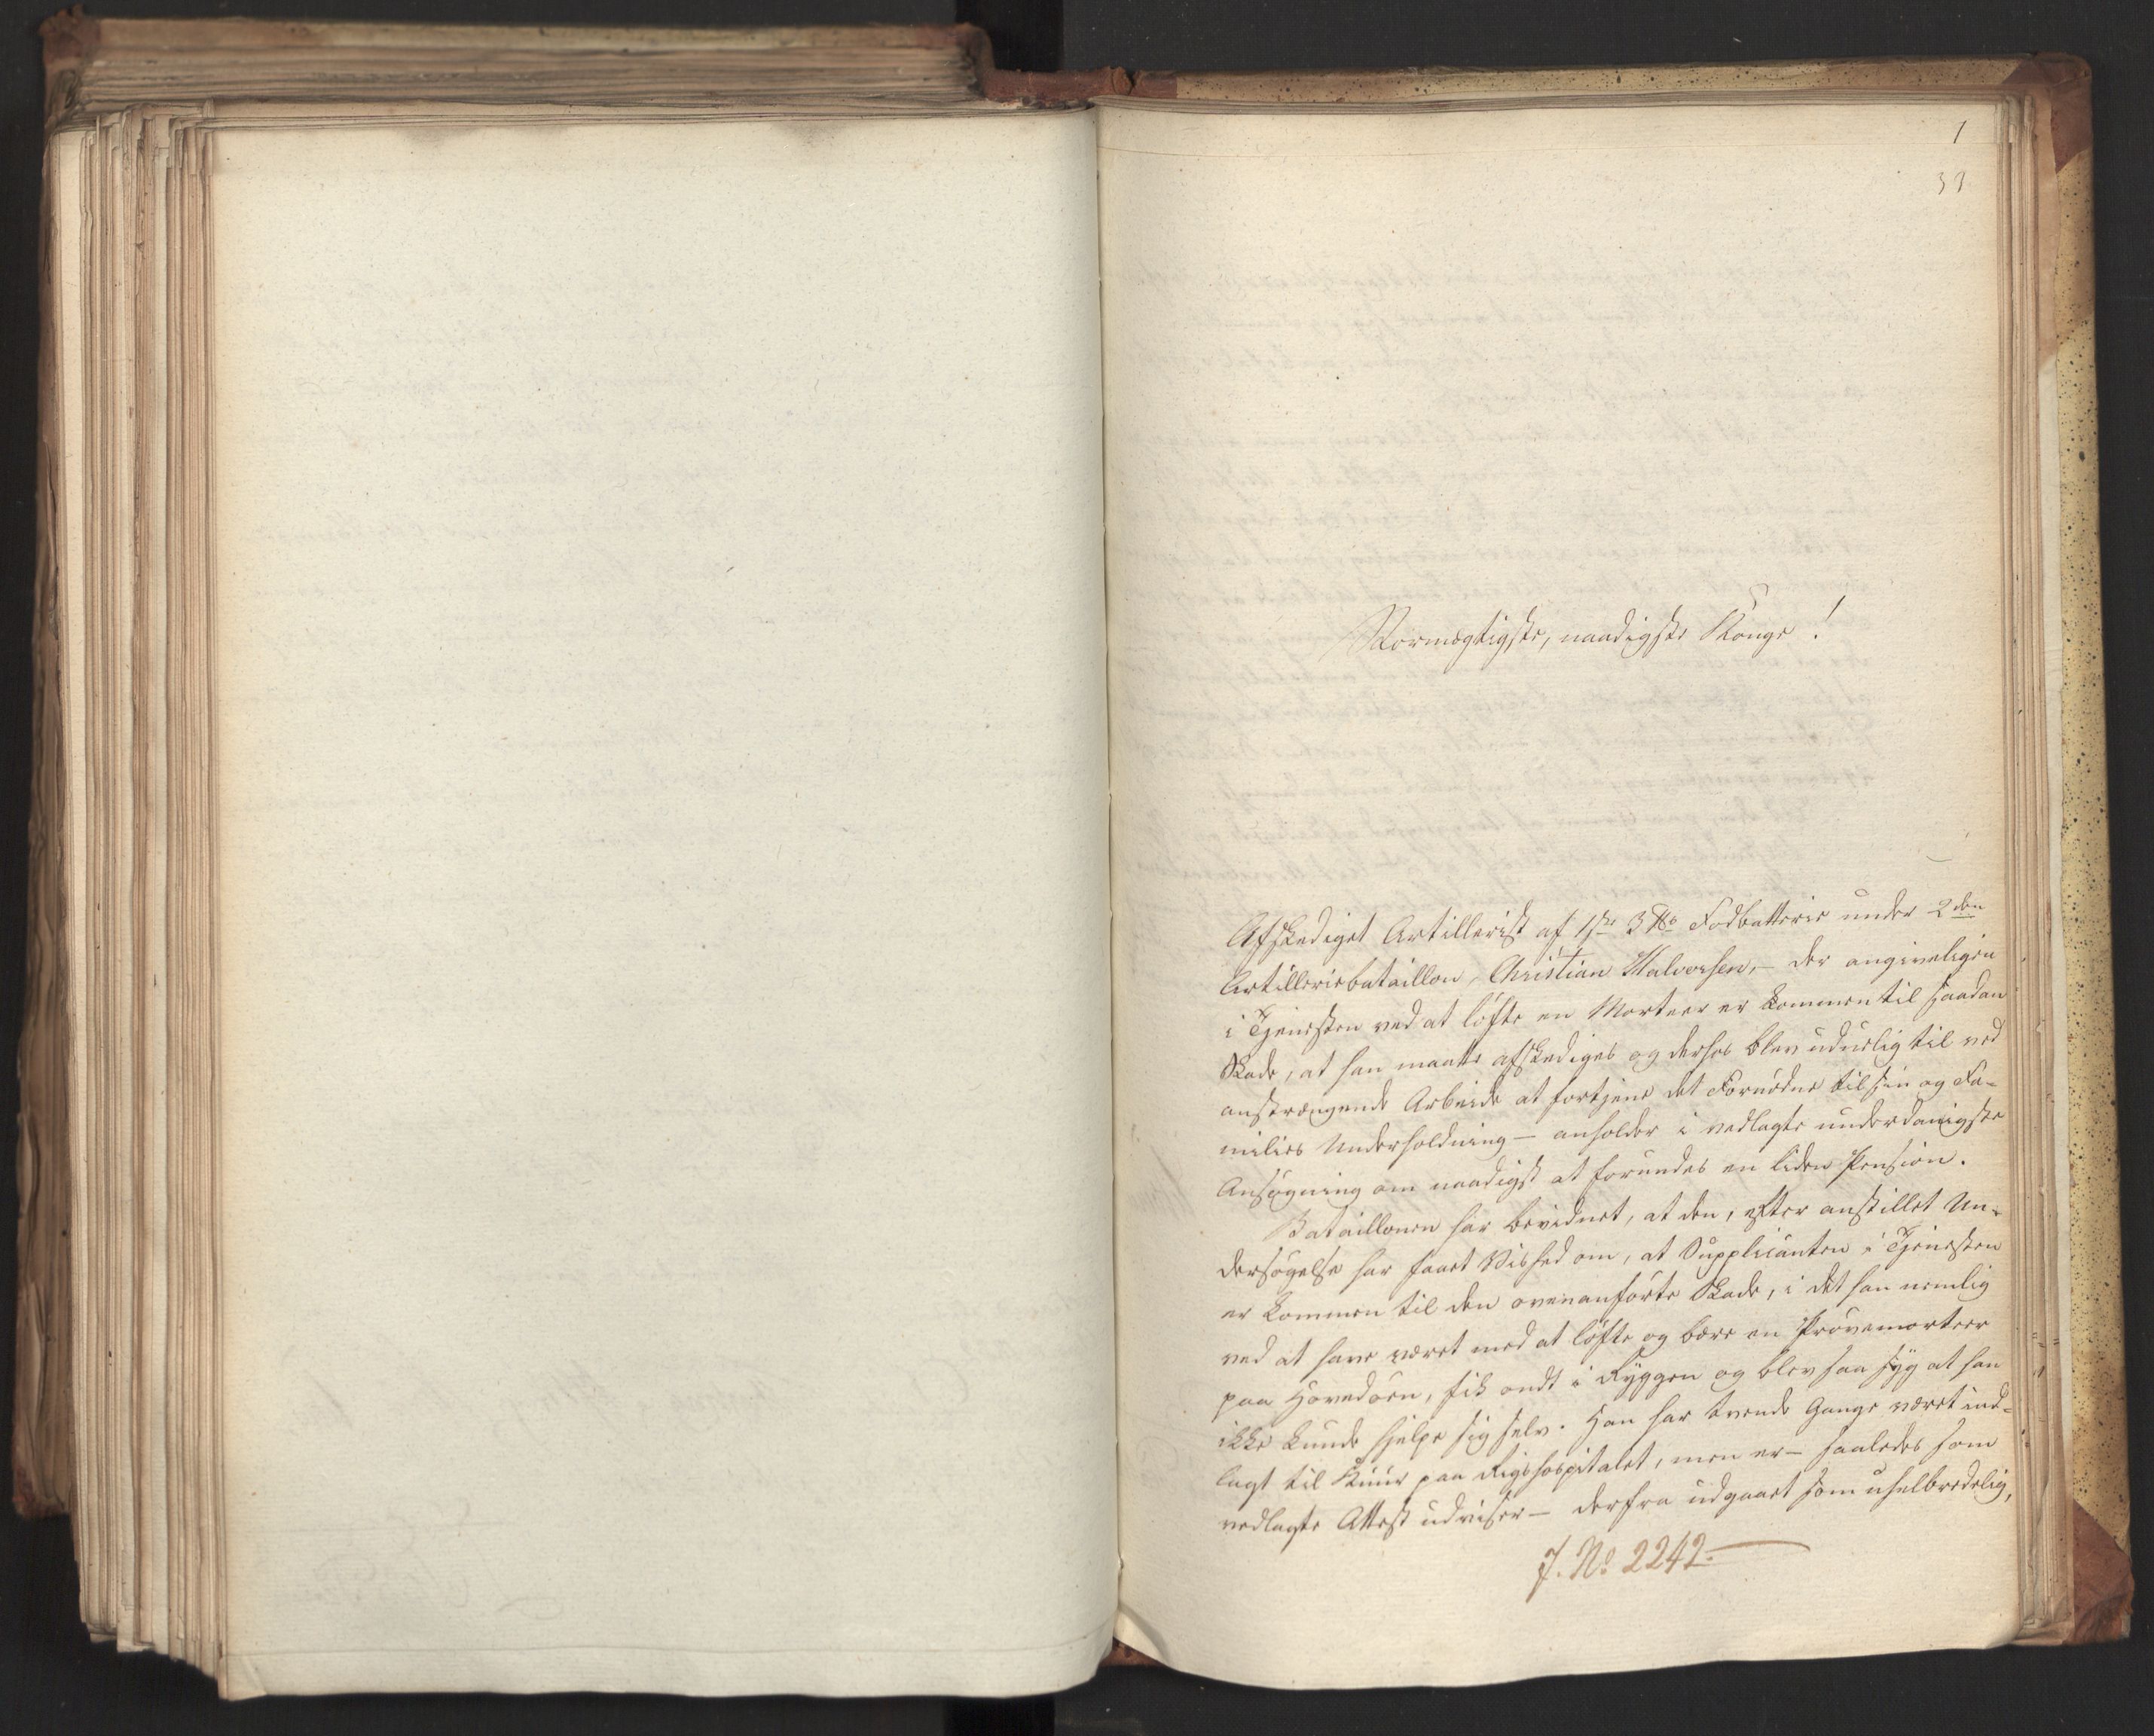 1
39
Stormægtigste, naadigste Konge!
Afskediget Artillerist af 1ste 3 ℔s Fodbatterie under 2den
Artilleriebataillon, Christian Halvorsen, – der angiveligen
i Tjenesten ved at löfte en Morteer er kommen til saadan
Skade, at han maatte afskediges og derhos blev uduelig til ved
anstrængende Arbeide at fortjene det Fornödne til sin og Fa-
milies Underholdning – anholder i vedlagte underdanigste
Ansögning om naadigst at forundes en liden Pension.
Bataillonen har bevidnet, at den, efter anstillet Un-
dersögelse har faaet Vished om, at Supplicanten i Tjenesten
er kommen til den ovenanförte Skade, i det han nemlig
ved at have været med at löfte og bære en Prövemorteer
paa Hovedöen, fik ondt i Ryggen og blev saa syg at han
ikke kunde hjelpe sig selv. Han har tvende Gange været ind-
lagt til Kuur paa Rigshospitalet, men er – saaledes som
vedlagte Attest udviser – derfra udgaaet som uhelbredelig,
J. No 2242.